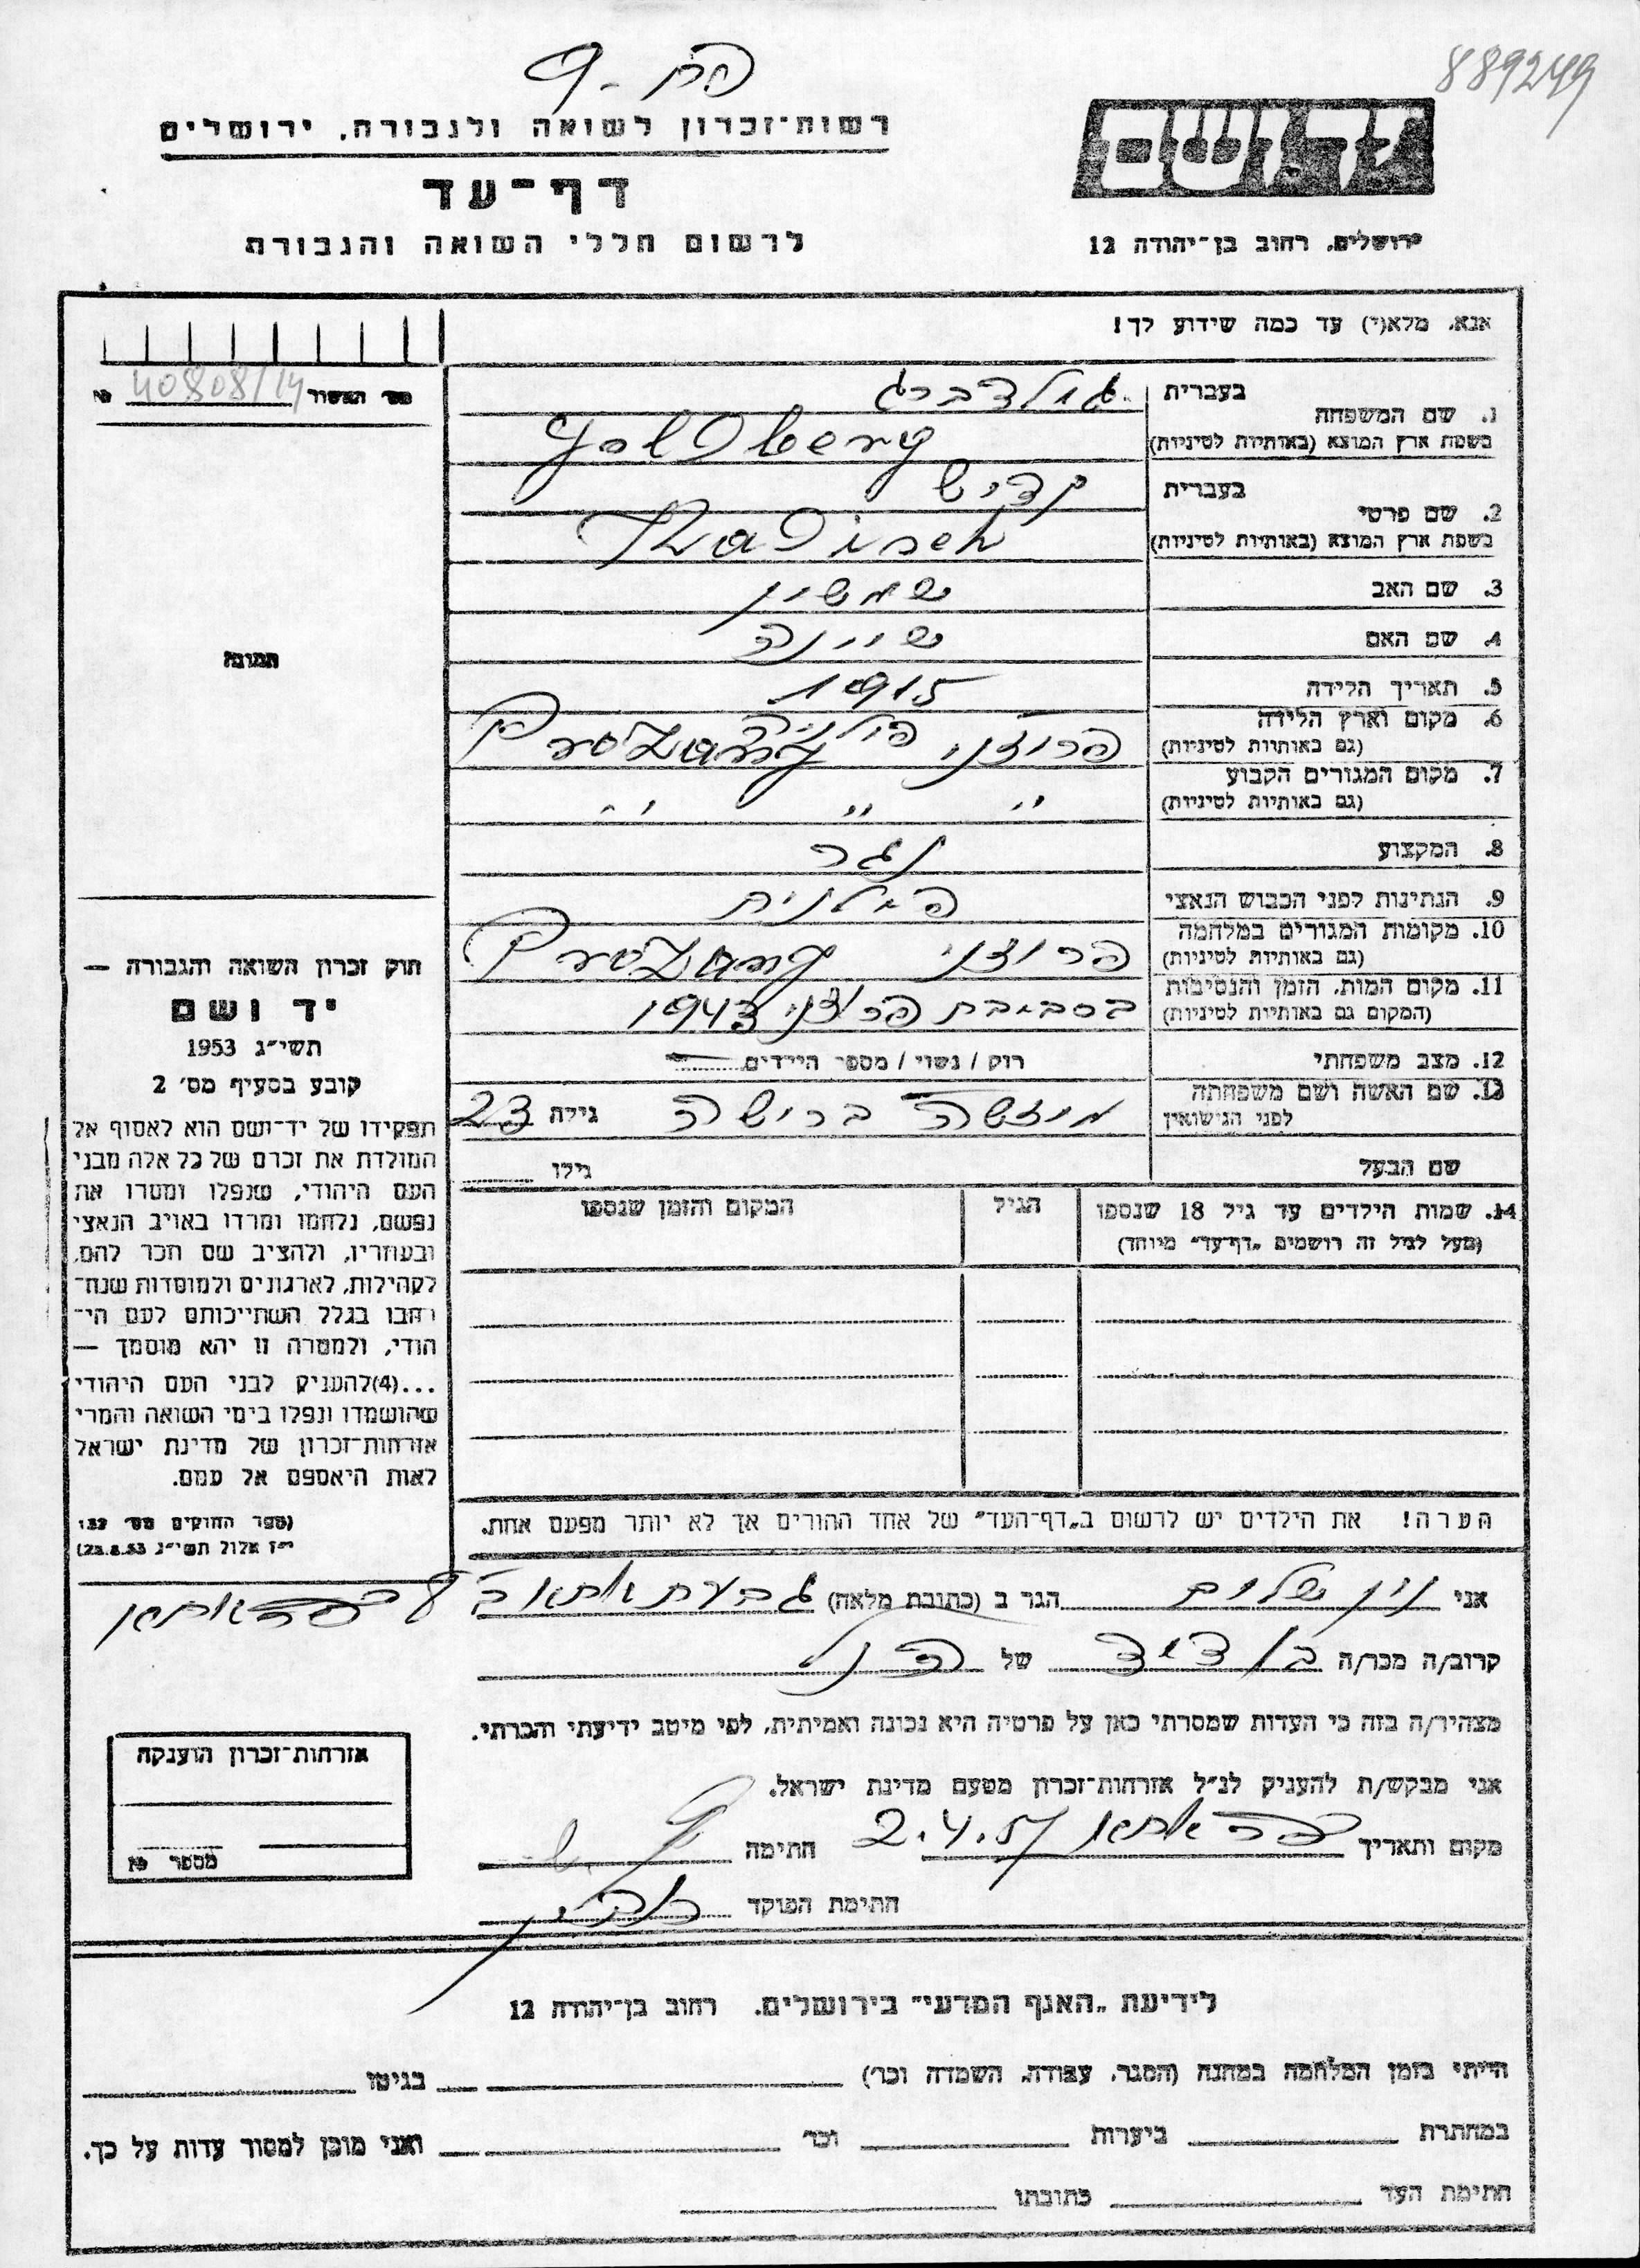 889249
פח - 9
יד ושם
רשות־זכרון לשואה ולגבורה, ירושלים
דף־עד
לרשום חללי השואה והגבורה
ירושלים, רחוב בן־יהודה 12
אנא, מלא(י) עד כמה שידוע לך!
מס' האשור № 40808/14
בעברית גולדברג
1. שם המשפחה
בשפת ארץ המוצא (באותיות לטיניות) Goldberg
בעברית קדיש
2. שם פרטי
בשפת ארץ המוצא (באותיות לטיניות) Kadisch
3. שם האב שמשון
4. שם האם שיינה
5. תאריך הלידה 1915
6. מקום וארץ הלידה פרוז'ני פולניה Prożany
(גם באותיות לטיניות)
7. מקום המגורים הקבוע " " "
(גם באותיות לטיניות)
8. המקצוע נגר
9. הנתינות לפני הכבוש הנאצי פולנית
10. מקומות המגורים במלחמה פרוז'ני Prożany
(גם באותיות לטיניות)
11. מקום המות, הזמן והנסיבות בסביבת פרוז'ני 1943
(המקום גם באותיות לטיניות)
12. מצב משפחתי רוק / נשוי / מספר הילדים
13. שם האשה ושם משפחתה
לפני הנישואין גילה 23
שם הבעל גילו
14. שמות הילדים עד גיל 18 שנספו הגיל המקום והזמן שנספו
(מעל לגיל זה רושמים „דף־עד" מיוחד)
הערה! את הילדים יש לרשום ב„דף־העד" של אחד ההורים אך לא יותר מפעם אחת.
תמונה
חוק זכרון השואה והגבורה —
יד ושם
תשי״ג 1953
קובע בסעיף מס׳ 2
תפקידו של יד־ושם הוא לאסוף אל
המולדת את זכרם של כל אלה מבני
העם היהודי, שנפלו ומסרו את
נפשם, נלחמו ומרדו באויב הנאצי
ובעוזריו, ולהציב שם וזכר להם,
לקהילות, לארגונים ולמוסדות שנח־
רבו בגלל השתייכותם לעם הי־
הודי, ולמטרה זו יהא מוסמך —
...(4)להעניק לבני העם היהודי
שהושמדו ונפלו בימי השואה והמרי
אזרחות־זכרון של מדינת ישראל
לאות היאספם אל עמם.
(ספר החוקים מס׳ 132
י״ז אלול תשי״ג 28.8.53)
אני שלום הגר ב (כתובת מלאה)
קרוב/ה מכר/ה בן דוד של הנ"ל
מצהיר/ה בזה כי העדות שמסרתי כאן על פרטיה היא נכונה ואמיתית, לפי מיטב ידיעתי והכרתי.
אני מבקש/ת להעניק לנ״ל אזרחות־זכרון מטעם מדינת ישראל.
מקום ותאריך 2.4.57 חתימה
חתימת הפוקד
אזרחות־זכרון הוענקה
מספר №
לידיעת „האגף המדעי" בירושלים, רחוב בן־יהודה 12
הייתי בזמן המלחמה במחנה (הסגר, עבודה, השמדה וכו׳) בגיטו
במחתרת ביערות וכו׳ ואני מוכן למסור עדות על כך.
חתימת העד כתובתו